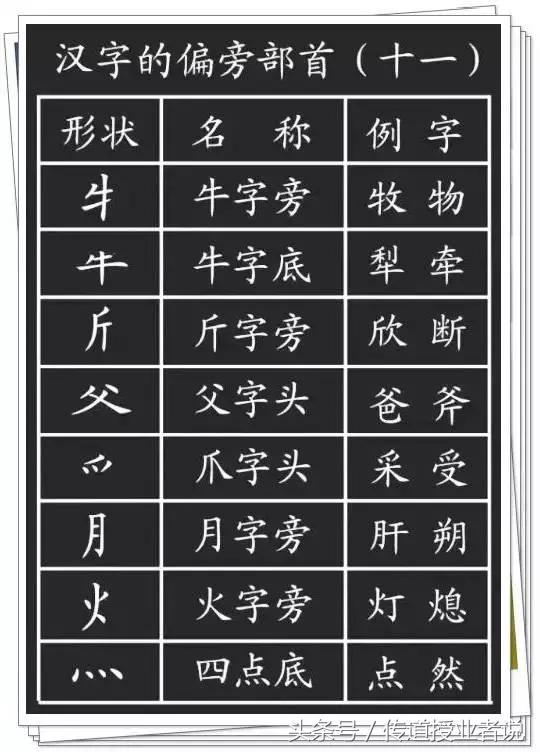 汉字的偏旁部首（十一）
形状 名 称 例 字
牜 牛字旁 牧 物
牛 牛字底 犁 牵
斤 斤字旁 欣 断
父 父字头 爸 斧
爫 爪字头 采 受
月 月字旁 肝 朔
火 火字旁 灯 熄
灬 四点底 点 然
头条号/传道授业者说